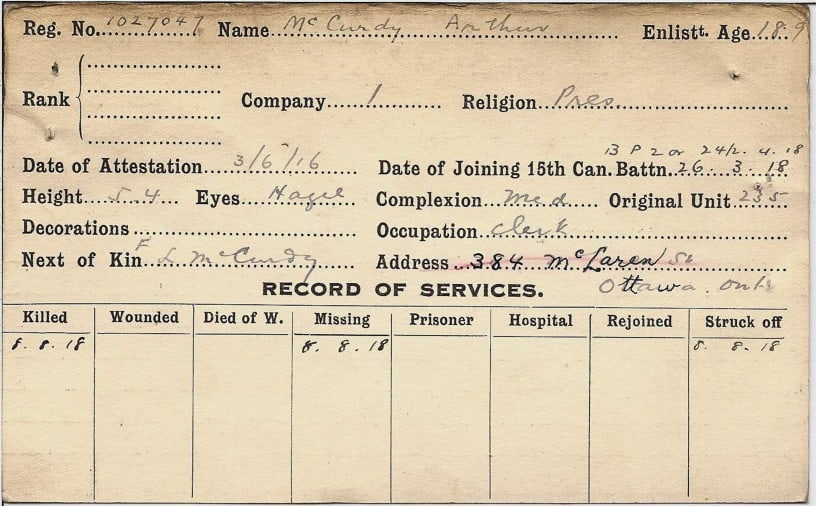 Reg. No. 1027047 Name McCurdy Arthur Enlistt. Age 18.9
Rank Company 1 Religion Pres.
13 P 2 or 24/2. 4. 18
Date of Attestation 3/6/16 Date of Joining 15th Can. Battn. 26. 3. 18
Height 5.4 Eyes Hazel Complexion Med Original Unit 235
Decorations Occupation Clerk
Next of Kin F L McCurdy Address 384 McLaren St
RECORD OF SERVICES. Ottawa. Ont
Killed Wounded Died of W. Missing Prisoner Hospital Rejoined Struck off
8. 8. 18 8. 8. 18 8. 8. 18